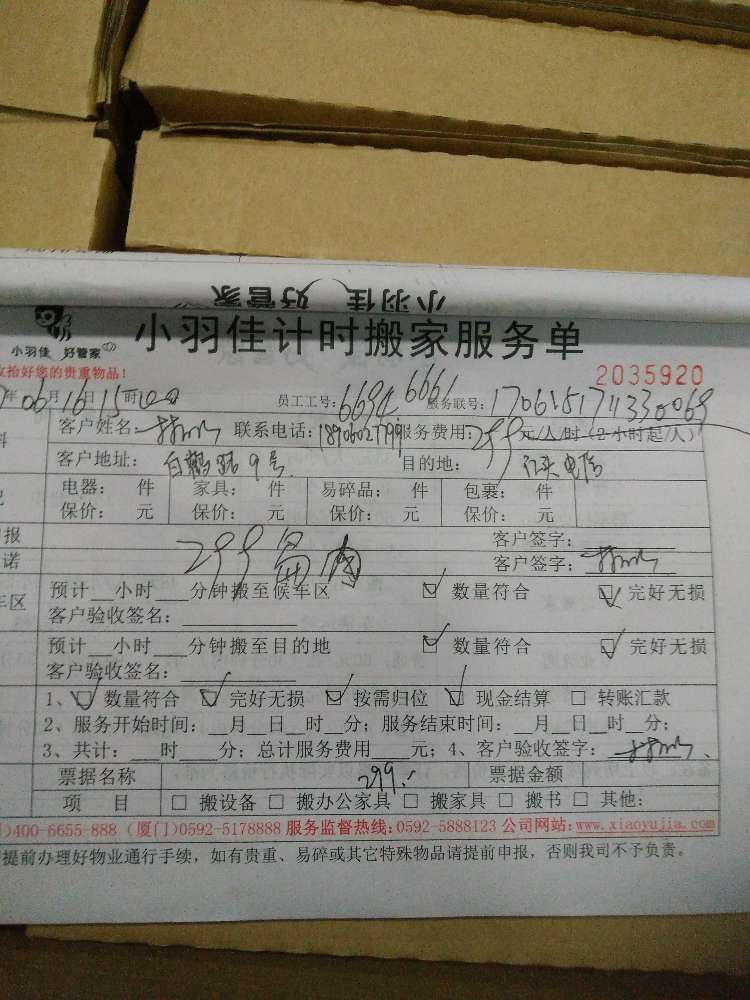 小羽佳 好管家
小羽佳 好管家
小羽佳计时搬家服务单
收拾好您的贵重物品！
2035920
年06月16日15时
员工工号：6694 6661 服务联号：
客户姓名： 联系电话：18906027799 服务费用：299元/人/时（2小时起/人）
客户地址：白鹤路9号 目的地：
电器： 件 家具： 件 易碎品： 件 包裹： 件
保价： 元 保价： 元 保价： 元 保价： 元
报 客户签字：
诺 299 客户签字：
预计__小时___分钟搬至候车区 ☑ 数量符合 ☑ 完好无损
车区 客户验收签名：
预计__小时___分钟搬至目的地 ☑ 数量符合 ☑ 完好无损
客户验收签名：
1、☑ 数量符合 ☑ 完好无损 ☑ 按需归位 ☑ 现金结算 □ 转账汇款
2、服务开始时间：__月__日__时__分；服务结束时间：__月__日__时__分；
3、共计：__时___分；总计服务费用___元；4、客户验收签字：
票据名称 299.- 票据金额
项 目 □ 搬设备 □ 搬办公家具 □ 搬家具 □ 搬书 □ 其他：
)400-6655-888 (厦门)0592-5178888 服务监督热线:0592-5888123 公司网站:www.xiaoyujia.com
提前办理好物业通行手续，如有贵重、易碎或其它特殊物品请提前申报，否则我司不予负责。